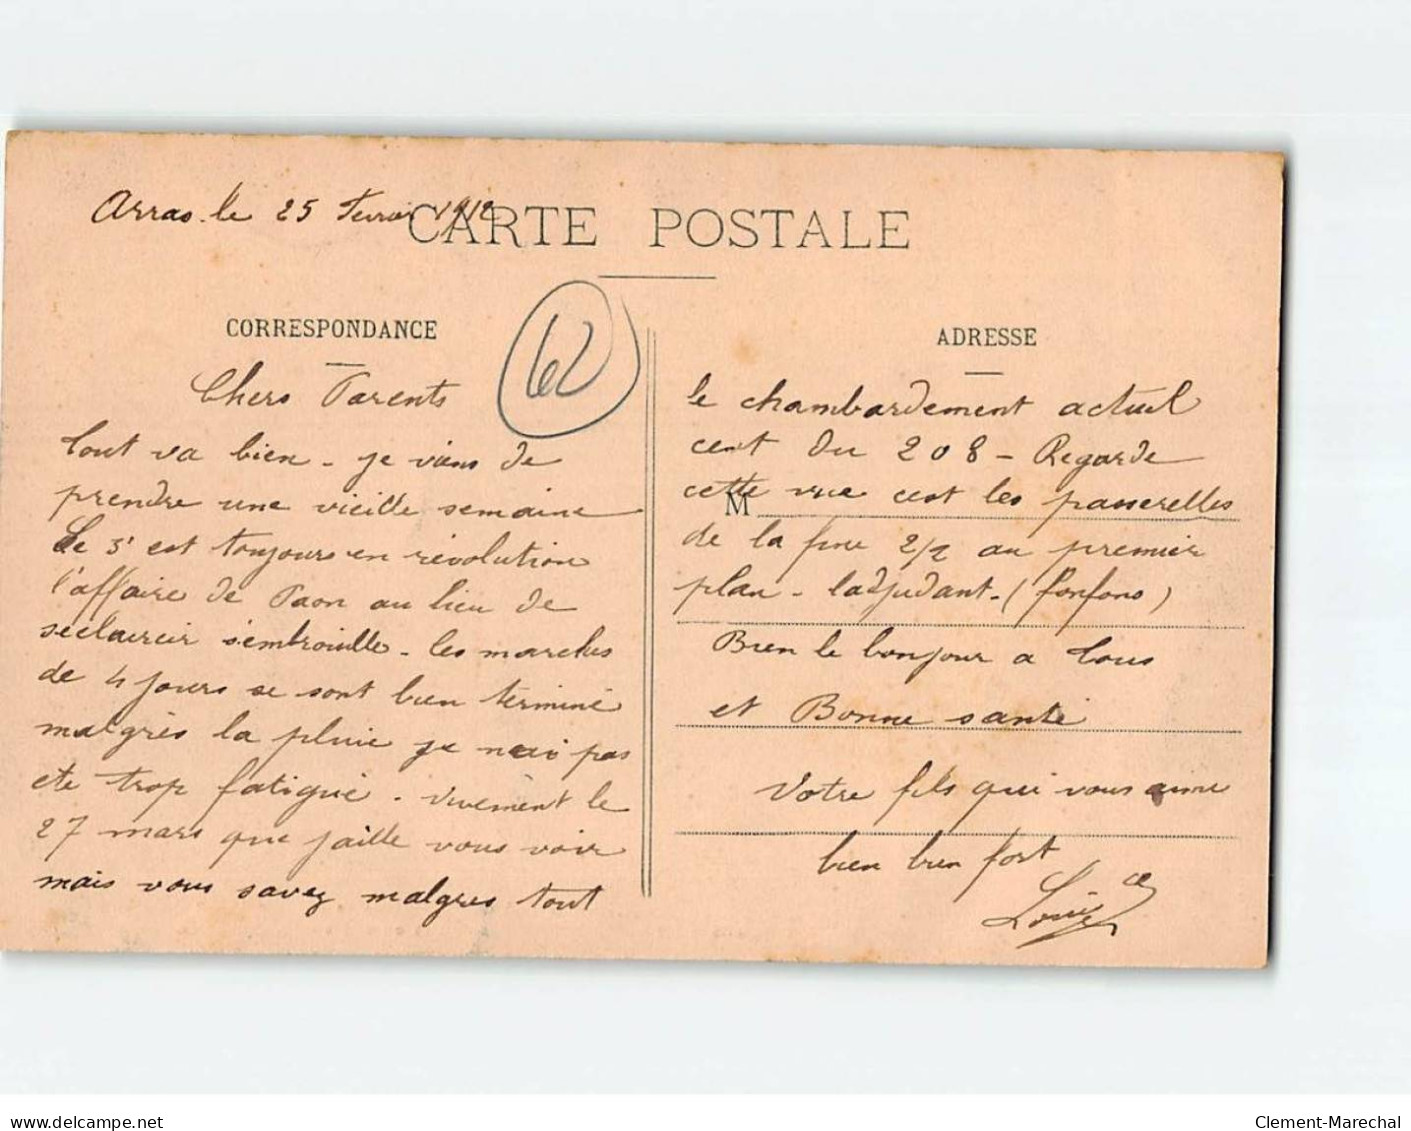 Arras le 25 Fevrier 1912
CARTE POSTALE
CORRESPONDANCE
62
Chers Parents
Tout va bien - je viens de
prendre une vieille semaine
Le 3e est toujours en révolution
l'affaire de Paon au lieu de
seclaircir s'embrouille - les marches
de 4 jours se sont bien terminé
malgrès la pluie je nai pas
ete trop fatigué - vivement le
27 mars que jaille vous voir
mais vous savez malgres tout
ADRESSE
le chambardement actuel
cest du 208 - Regarde
cette vue cest les passerelles
M
de la fine 2/2 au premier
plan - ladjudant - (fonfons)
Bien le bonjour a tous
et Bonne santé
Votre fils qui vous aime
bien bien fort
Louis
Clement-Marechal
www.delcampe.net